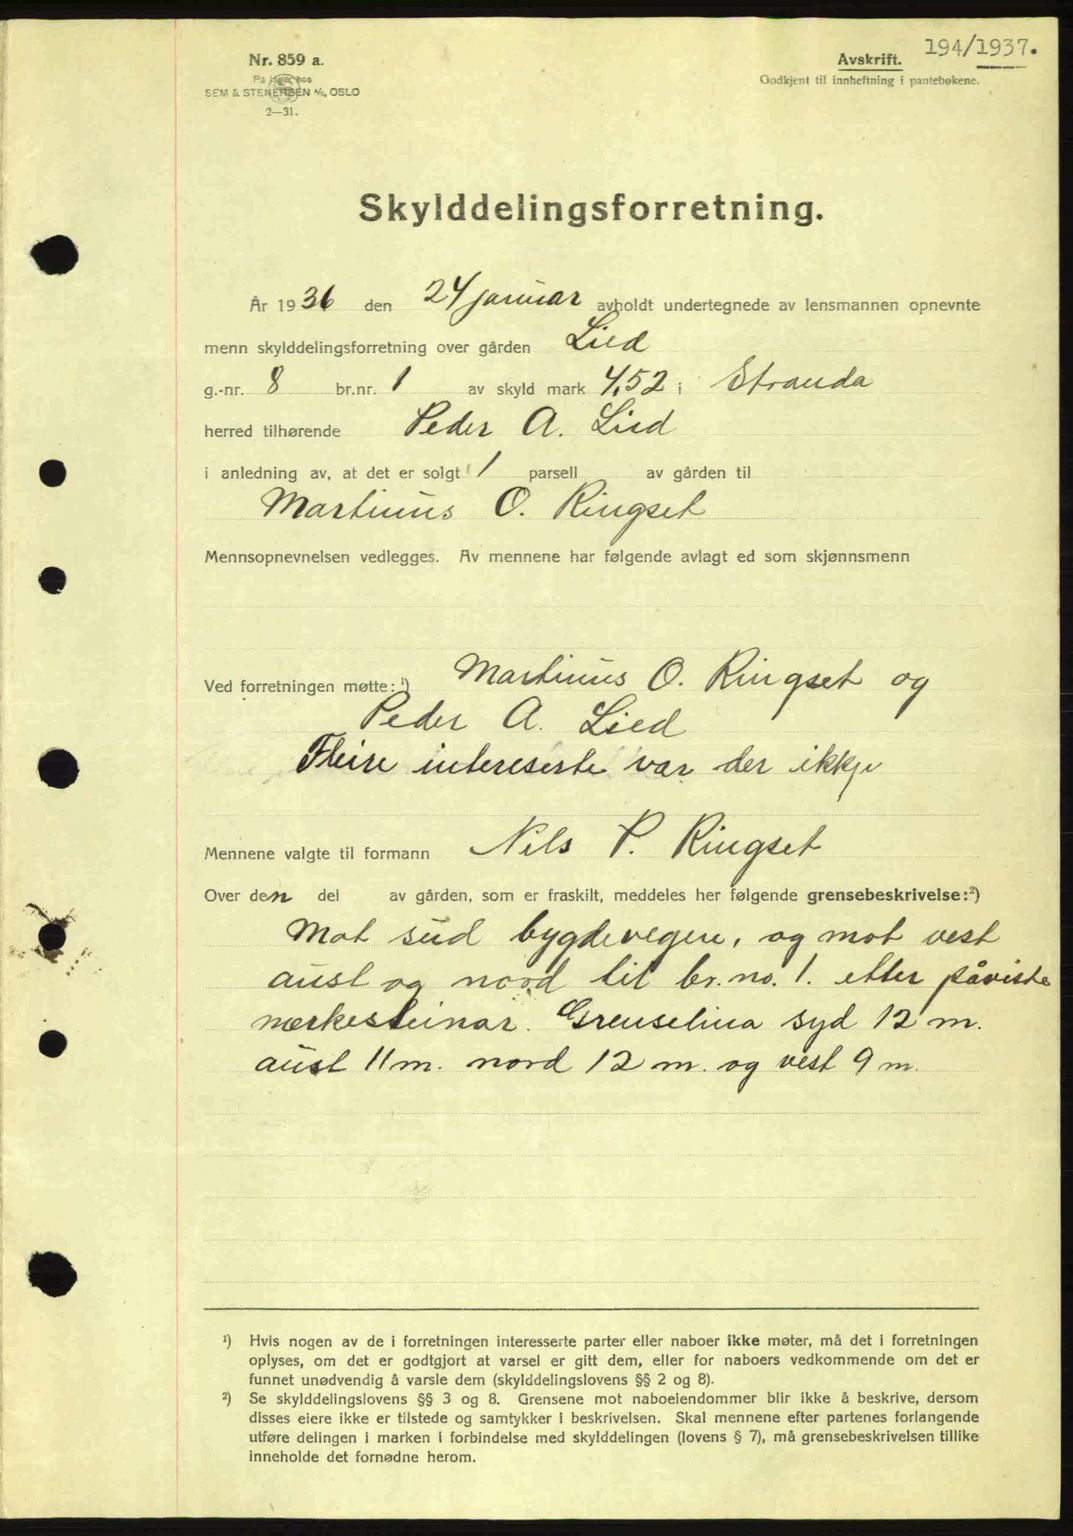 194/1937.
Nr. 859 a.
Avskrift.
På lager hos
Godkjent til innheftning i pantebøkene.
SEM & STENERSEN A/S, OSLO
2—31.
Skylddelingsforretning.
År 1936 den 24 januar avholdt undertegnede av lensmannen opnevnte
menn skylddelingsforretning over gården Lied
g.-nr. 8 br.nr. 1 av skyld mark 4,52 i Stranda
herred tilhørende Peder A. Lied
i anledning av, at det er solgt 1 parsell av gården til
Martinus O. Ringset
Mennsopnevnelsen vedlegges. Av mennene har følgende avlagt ed som skjønnsmenn
Ved forretningen møtte: ¹) Martinus O. Ringset og
Peder A. Lied
Fleire intereserte var der ikkje
Mennene valgte til formann Nils P. Ringset
Over den del av gården, som er fraskilt, meddeles her følgende grensebeskrivelse:²)
Mot sud bygdevegen, og mot vest
aust og nord til br.no. 1. etter påviste
merkesteinar. Grenselina syd 12 m.
aust 11 m. nord 12 m. og vest 9 m.
¹) Hvis nogen av de i forretningen interesserte parter eller naboer ikke møter, må det i forretningen
oplyses, om det er godtgjort at varsel er gitt dem, eller for naboers vedkommende om det er
funnet unødvendig å varsle dem (skylddelingslovens §§ 2 og 8).
²) Se skylddelingslovens §§ 3 og 8. Grensene mot naboeiendommer blir ikke å beskrive, dersom
disses eiere ikke er tilstede og samtykker i beskrivelsen. Skal mennene efter partenes forlangende
utføre delingen i marken i forbindelse med skylddelingen (lovens § 7), må grensebeskrivelsen tillike
inneholde det fornødne herom.